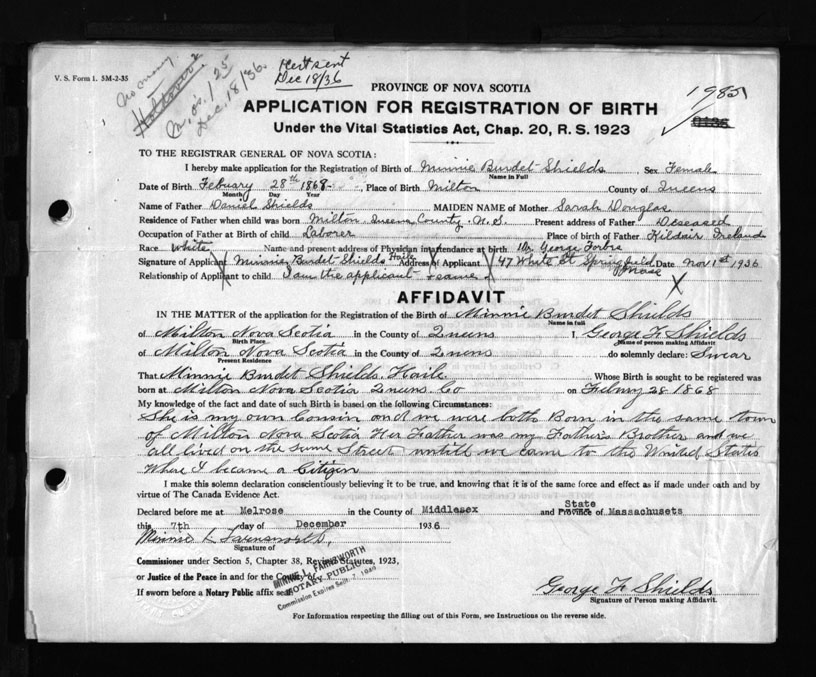 V. S. Form 1. 5M-2-35
No money
M.O's. 1.25
Dec. 18/36.
Cert sent
Dec 18/36
1985
PROVINCE OF NOVA SCOTIA
APPLICATION FOR REGISTRATION OF BIRTH
Under the Vital Statistics Act, Chap. 20, R. S. 1923
TO THE REGISTRAR GENERAL OF NOVA SCOTIA:
I hereby make application for the Registration of Birth of Minnie Burdet Shields Sex Female
Name in Full
Date of Birth Febuary 28th 1868 Place of Birth Milton County of Queens
Month Day Year
Name of Father Daniel Shields MAIDEN NAME of Mother Sarah Douglas
Residence of Father when child was born Milton, Queens County, N. S. Present address of Father Deseased
Occupation of Father at Birth of child Laborer Place of birth of Father Kildair Ireland
Race White Name and present address of Physician in attendance at birth Dr George Forbs
Signature of Applicant Minnie Burdet Shields Haile Address of Applicant 47 White St Springfield Mass Date Nov 1st 1936
Relationship of Applicant to child I am the applicant - same
AFFIDAVIT
IN THE MATTER of the application for the Registration of the Birth of Minnie Burdet Shields
Name in full
of Milton Nova Scotia in the County of Queens I, George F. Shields
Birth Place Name of person making Affidavit
of Milton Nova Scotia in the County of Queens do solemnly declare: Swear
Present Residence
That Minnie Burdet Shields. Haile Whose Birth is sought to be registered was
born at Milton Nova Scotia Queens. Co on Febuary 28 1868
My knowledge of the fact and date of such Birth is based on the following Circumstances:
She is my own Cousin and we were both Born in the same town
of Milton Nova Scotia Her Father was my Father's Brother and we
all lived on the same Street untill we came to the United States
Where I became a Citizen
I make this solemn declaration conscientiously believing it to be true, and knowing that it is of the same force and effect as if made under oath and by
virtue of The Canada Evidence Act.
Declared before me at Melrose in the County of Middlesex and State Province of Massachusets
this 7th day of December 1936
Minnie L Farnsworth.
Signature of
Commissioner under Section 5, Chapter 38, Revised Statutes, 1923,
or Justice of the Peace in and for the County of
If sworn before a Notary Public affix seal
MINNIE L. FARNSWORTH
NOTARY PUBLIC
Commission Expires Sept. 7, 1940
George F Shields
Signature of Person making Affidavit.
For Information respecting the filling out of this Form, see Instructions on the reverse side.